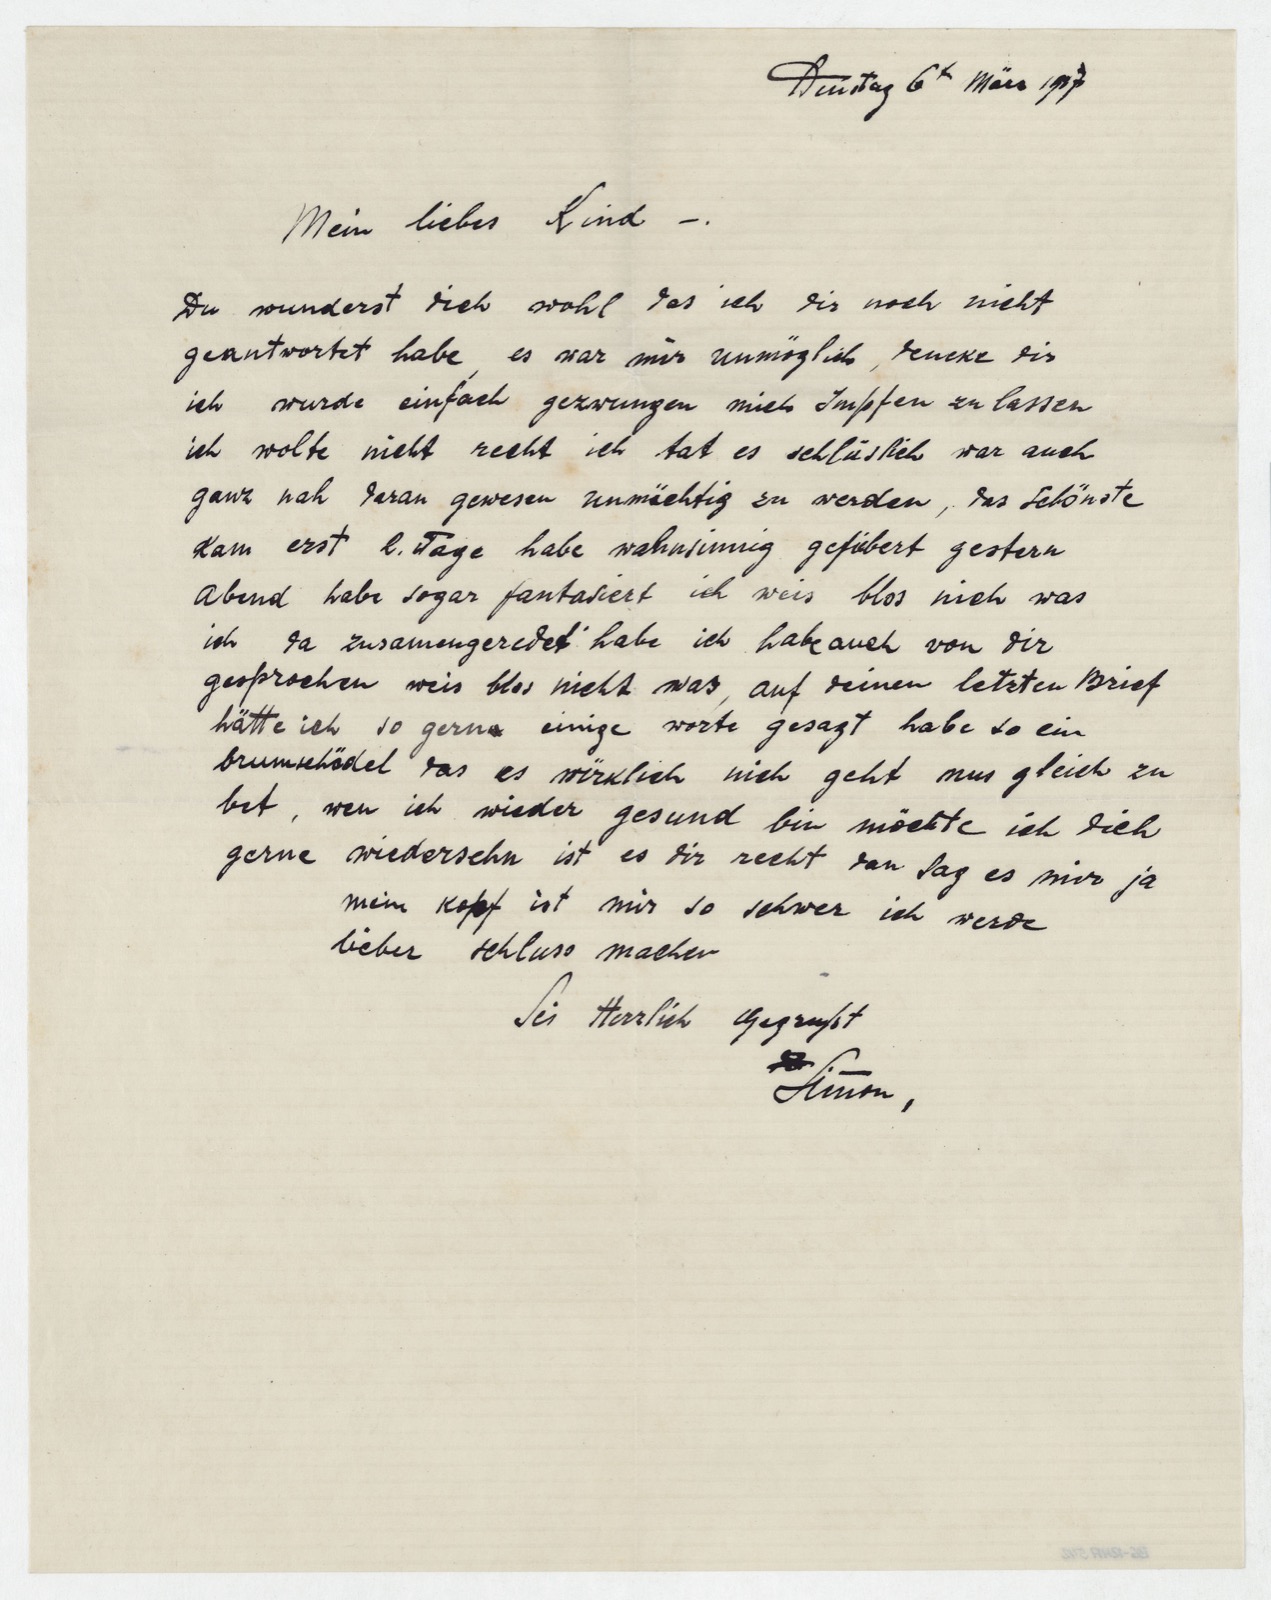 Dienstag 6t März 1917
Mein liebes Kind –.
Du wunderst dich wohl das ich dir noch nicht
geantwortet habe, es war mir unmöglich, dencke dir
ich wurde einfach gezwungen mich Impfen zu lassen
ich wolte nicht recht ich tat es schlüslich war auch
ganz nah daran gewesen unmächtig zu werden, das Schönste
kam erst 2. Tage habe wahnsinnig gefübert gestern
Abend habe sogar fantasiert ich weis blos nich was
ich da zusamengeredet habe ich habe auch von dir
gesprochen weis blos nicht was, auf deinen letzten Brief
hätte ich so gerne einige worte gesagt habe so ein
brumschädel das es würklich nich geht mus gleich zu
bet, wen ich wieder gesund bin möchte ich dich
gerne wiedersehn ist es dir recht dan sag es mir ja
mein kopf ist mir so schwer ich werde
lieber schluss machen
Sei Herzlich Gegrüßt
Simon,